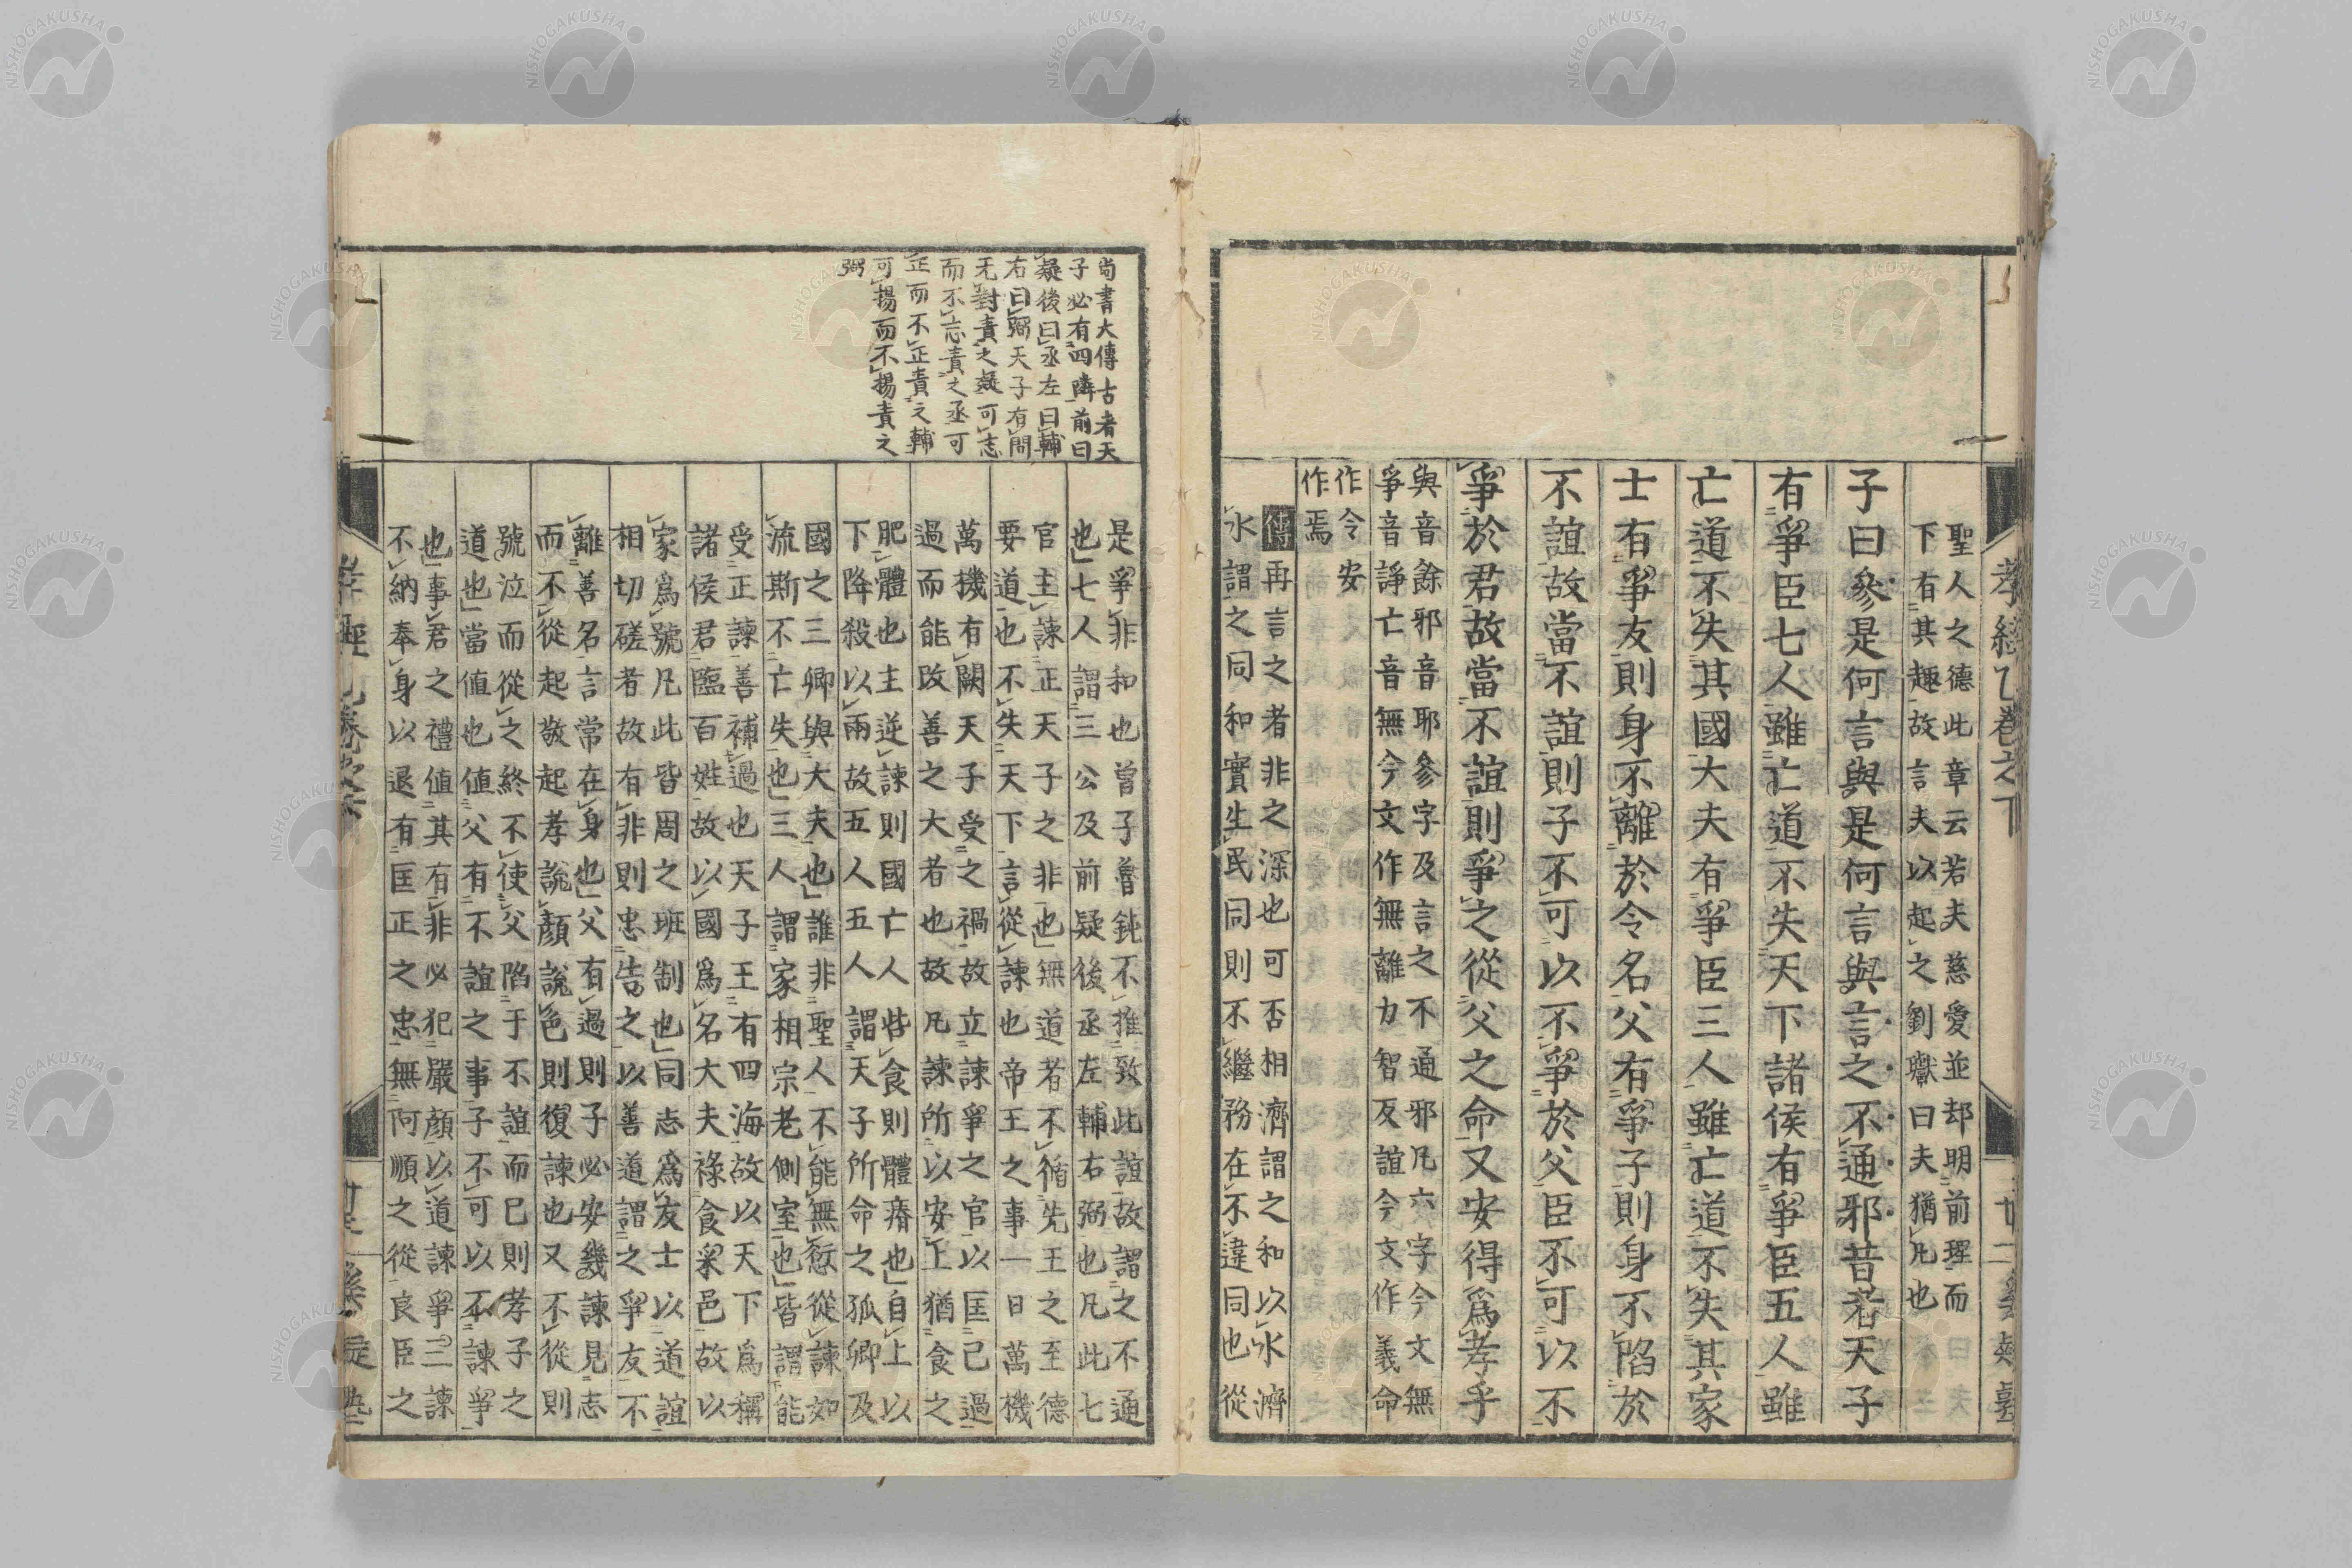 聖人之德此章云若夫慈愛並却明前理而
下有其趣故言夫以起之劉瓛曰夫猶凡也
子曰參是何言與是何言與言之不通邪昔者天子
有爭臣七人雖亡道不失天下諸侯有爭臣五人雖
亡道不失其國大夫有爭臣三人雖亡道不失其家
士有爭友則身不離於令名父有爭子則身不陷於
不誼故當不誼則子不可以不爭於父臣不可以不
爭於君故當不誼則爭之從父之命又安得爲孝乎
與音餘邪音耶參字及言之不通邪凡六字今文無
爭音諍亡音無今文作無離力智反誼今文作義命
作令安
作焉
傳再言之者非之深也可否相濟謂之和以水濟
水謂之同和實生民同則不繼務在不違同也從
尚書大傳古者天
子必有四隣前曰
疑後曰丞左曰輔
右曰弼天子有問
无對責之疑可志
而不志責之丞可
正而不正責之輔
可揚而不揚責之
弼
是爭非和也曾子魯鈍不推致此誼故謂之不通
也七人謂三公及前疑後丞左輔右弼也凡此七
官主諫正天子之非也無道者不循先王之至德
要道也不失天下言從諫也帝王之事一日萬機
萬機有闕天子受之禍故立諫爭之官以匡己過
過而能改善之大者也故凡諫所以安上猶食之
肥體也主逆諫則國亡人呰食則體瘠也自上以
下降殺以兩故五人五人謂天子所命之孤卿及
國之三卿與大夫也誰非聖人不能無愆從諫如
流斯不亡失也三人謂家相宗老側室也皆謂能
受正諫善補過也天子王有四海故以天下爲稱
諸侯君臨百姓故以國爲名大夫祿食采邑故以
家爲號凡此皆周之班制也同志爲友士以道誼
相切磋者故有非則忠告之以善道謂之爭友不
離善名言常在身也父有過則子必安幾諫見志
而不從起敬起孝說顏說色則復諫也又不從則
號泣而從之終不使父陷于不誼而已則孝子之
道也當值也値父有不誼之事子不可以不諫爭
也事君之禮值其有非必犯嚴顏以道諫爭三諫
不納奉身以退有匡正之忠無阿順之從良臣之